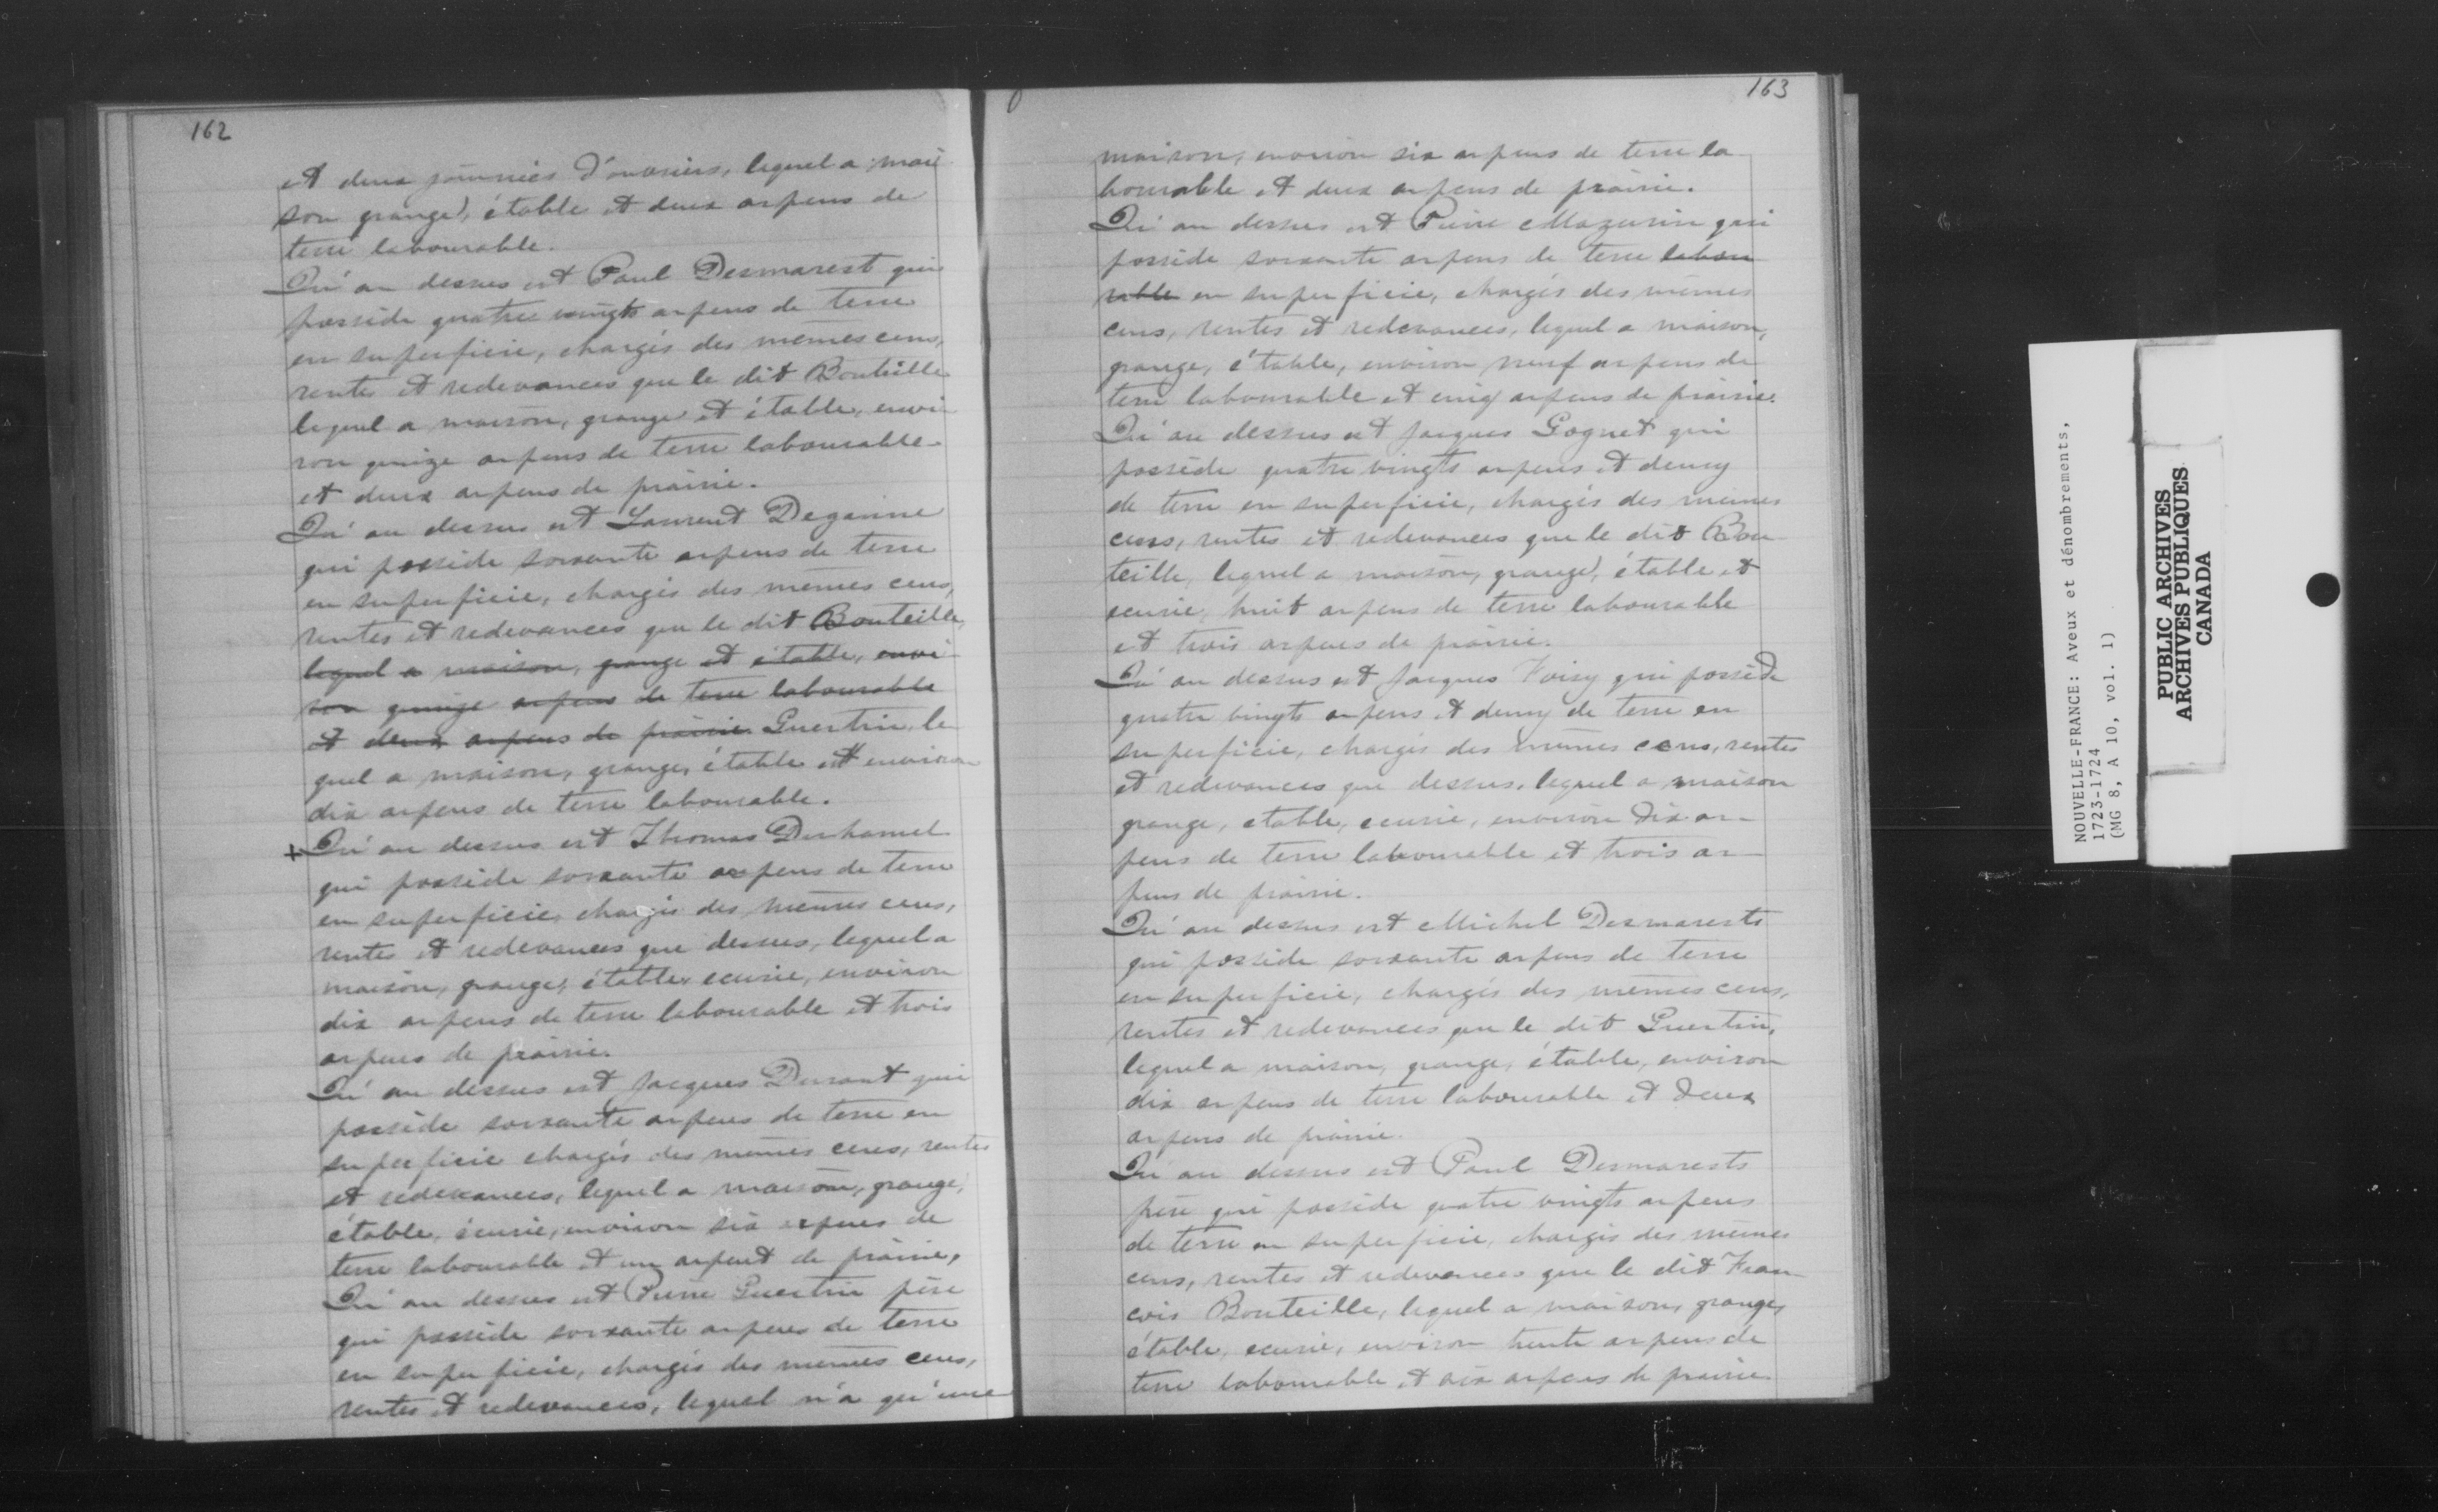 162
et deux journées d'ouvriers, lequel a mai
son grange, étable et deux arpens de
terre labourable.
Qu'au dessus est Paul Desmarest qui
possède quatre vingts arpens de terre
en superficie, chargés des mêmes cens,
rentes et redevances que le dit Bouteille
lequel a maison, grange et étable, envi
ron quinze arpens de terre labourable
et deux arpens de prairie.
Qu'au dessus est Laurent Deganne
qui possède soixante arpens de terre
en superficie, chargés des mêmes cens,
rentes et redevances que le dit Bouteille,
lequel a maison, grange et étable, envi
ron quinze arpens de terre labourable
et deux arpens de prairie Guertin, le
quel a maison, grange, étable et environ
dix arpens de terre labourable.
+ Qu'au dessus est Thomas Duhamel
qui possède soixante arpens de terre
en superficie, chargés des mêmes cens,
rentes et redevances que dessus, lequel a
maison, grange, étable, ecurie, environ
dix arpens de terre labourable et trois
arpens de prairie.
Qu'au dessus est Jacques Durant qui
possède soixante arpens de terre en
superficie chargés des mêmes cens, rentes
et redevances, lequel a maison, grange,
étable, écurie, environ six arpens de
terre labourable et un arpent de prairie,
Qu'au dessus est Pierre Guertin père
qui possède soixante arpens de terre
en superficie, chargés des mêmes cens,
rentes et redevances, lequel n'a qu'une
163
maison, environ six arpens de terre la
bourable et deux arpens de prairie.
Qu'au dessus est Pierre Mazurin qui
possède soixante arpens de terre labou
rable en superficie, chargés des mêmes
cens, rentes et redevances, lequel a maison,
grange, étable, environ neuf arpens de
terre labourable et cinq arpens de prairie.
Qu'au dessus est Jacques Gognet qui
possède quatre vingts arpens et demy
de terre en superficie, chargés des mêmes
cens, rentes et redevances que le dit Bou
teille, lequel a maison, grange, étable et
ecurie, huit arpens de terre labourable
et trois arpens de prairie.
Qu'au dessus est Jacques Foisy qui possède
quatre vingts arpens et demy de terre en
superficie, chargés des mêmes cens, rentes
et redevances que dessus, lequel a maison
grange, etable, ecurie, environ dix ar-
pens de terre labourable et trois ar-
pens de prairie.
Qu'au dessus est Michel Desmarests
qui possède soixante arpens de terre
en superficie, chargés des mêmes cens,
rentes et redevances que le dit Guertin,
lequel a maison, grange, étable, environ
dix arpens de terre labourable et deux
arpens de prairie.
Qu'au dessus est Paul Desmarests
père qui possède quatre vingts arpens
de terre en superficie, chargés des mêmes
cens, rentes et redevances que le dit Fran-
cois Bouteille, lequel a maison, grange,
étable, ecurie, environ trente arpens de
terre labourable et six arpens de prairie
NOUVELLE-FRANCE: Aveux et dénombrements,
1723-1724
(MG 8, A 10, vol. 1)
PUBLIC ARCHIVES
ARCHIVES PUBLIQUES
CANADA